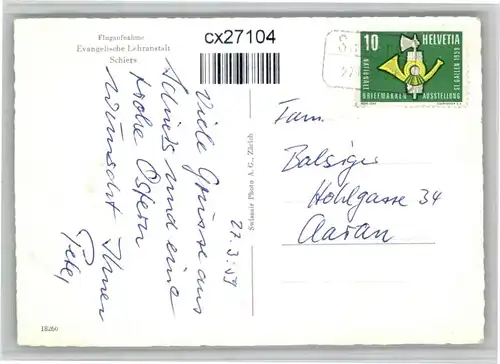 Flugaufnahme
Evangelische Lehranstalt
Schiers
cx27104
Viele Grüsse aus
Schiers und eine
frohe Ostern
wünscht Ihnen
Peter
27.3.59
Swissair Photo A.G., Zürich
10 HELVETIA
NATIONALE
BRIEFMARKEN AUSSTELLUNG
ST. GALLEN 1959
Fam.
Balsiger
Hohlgasse 34
Aarau
18260